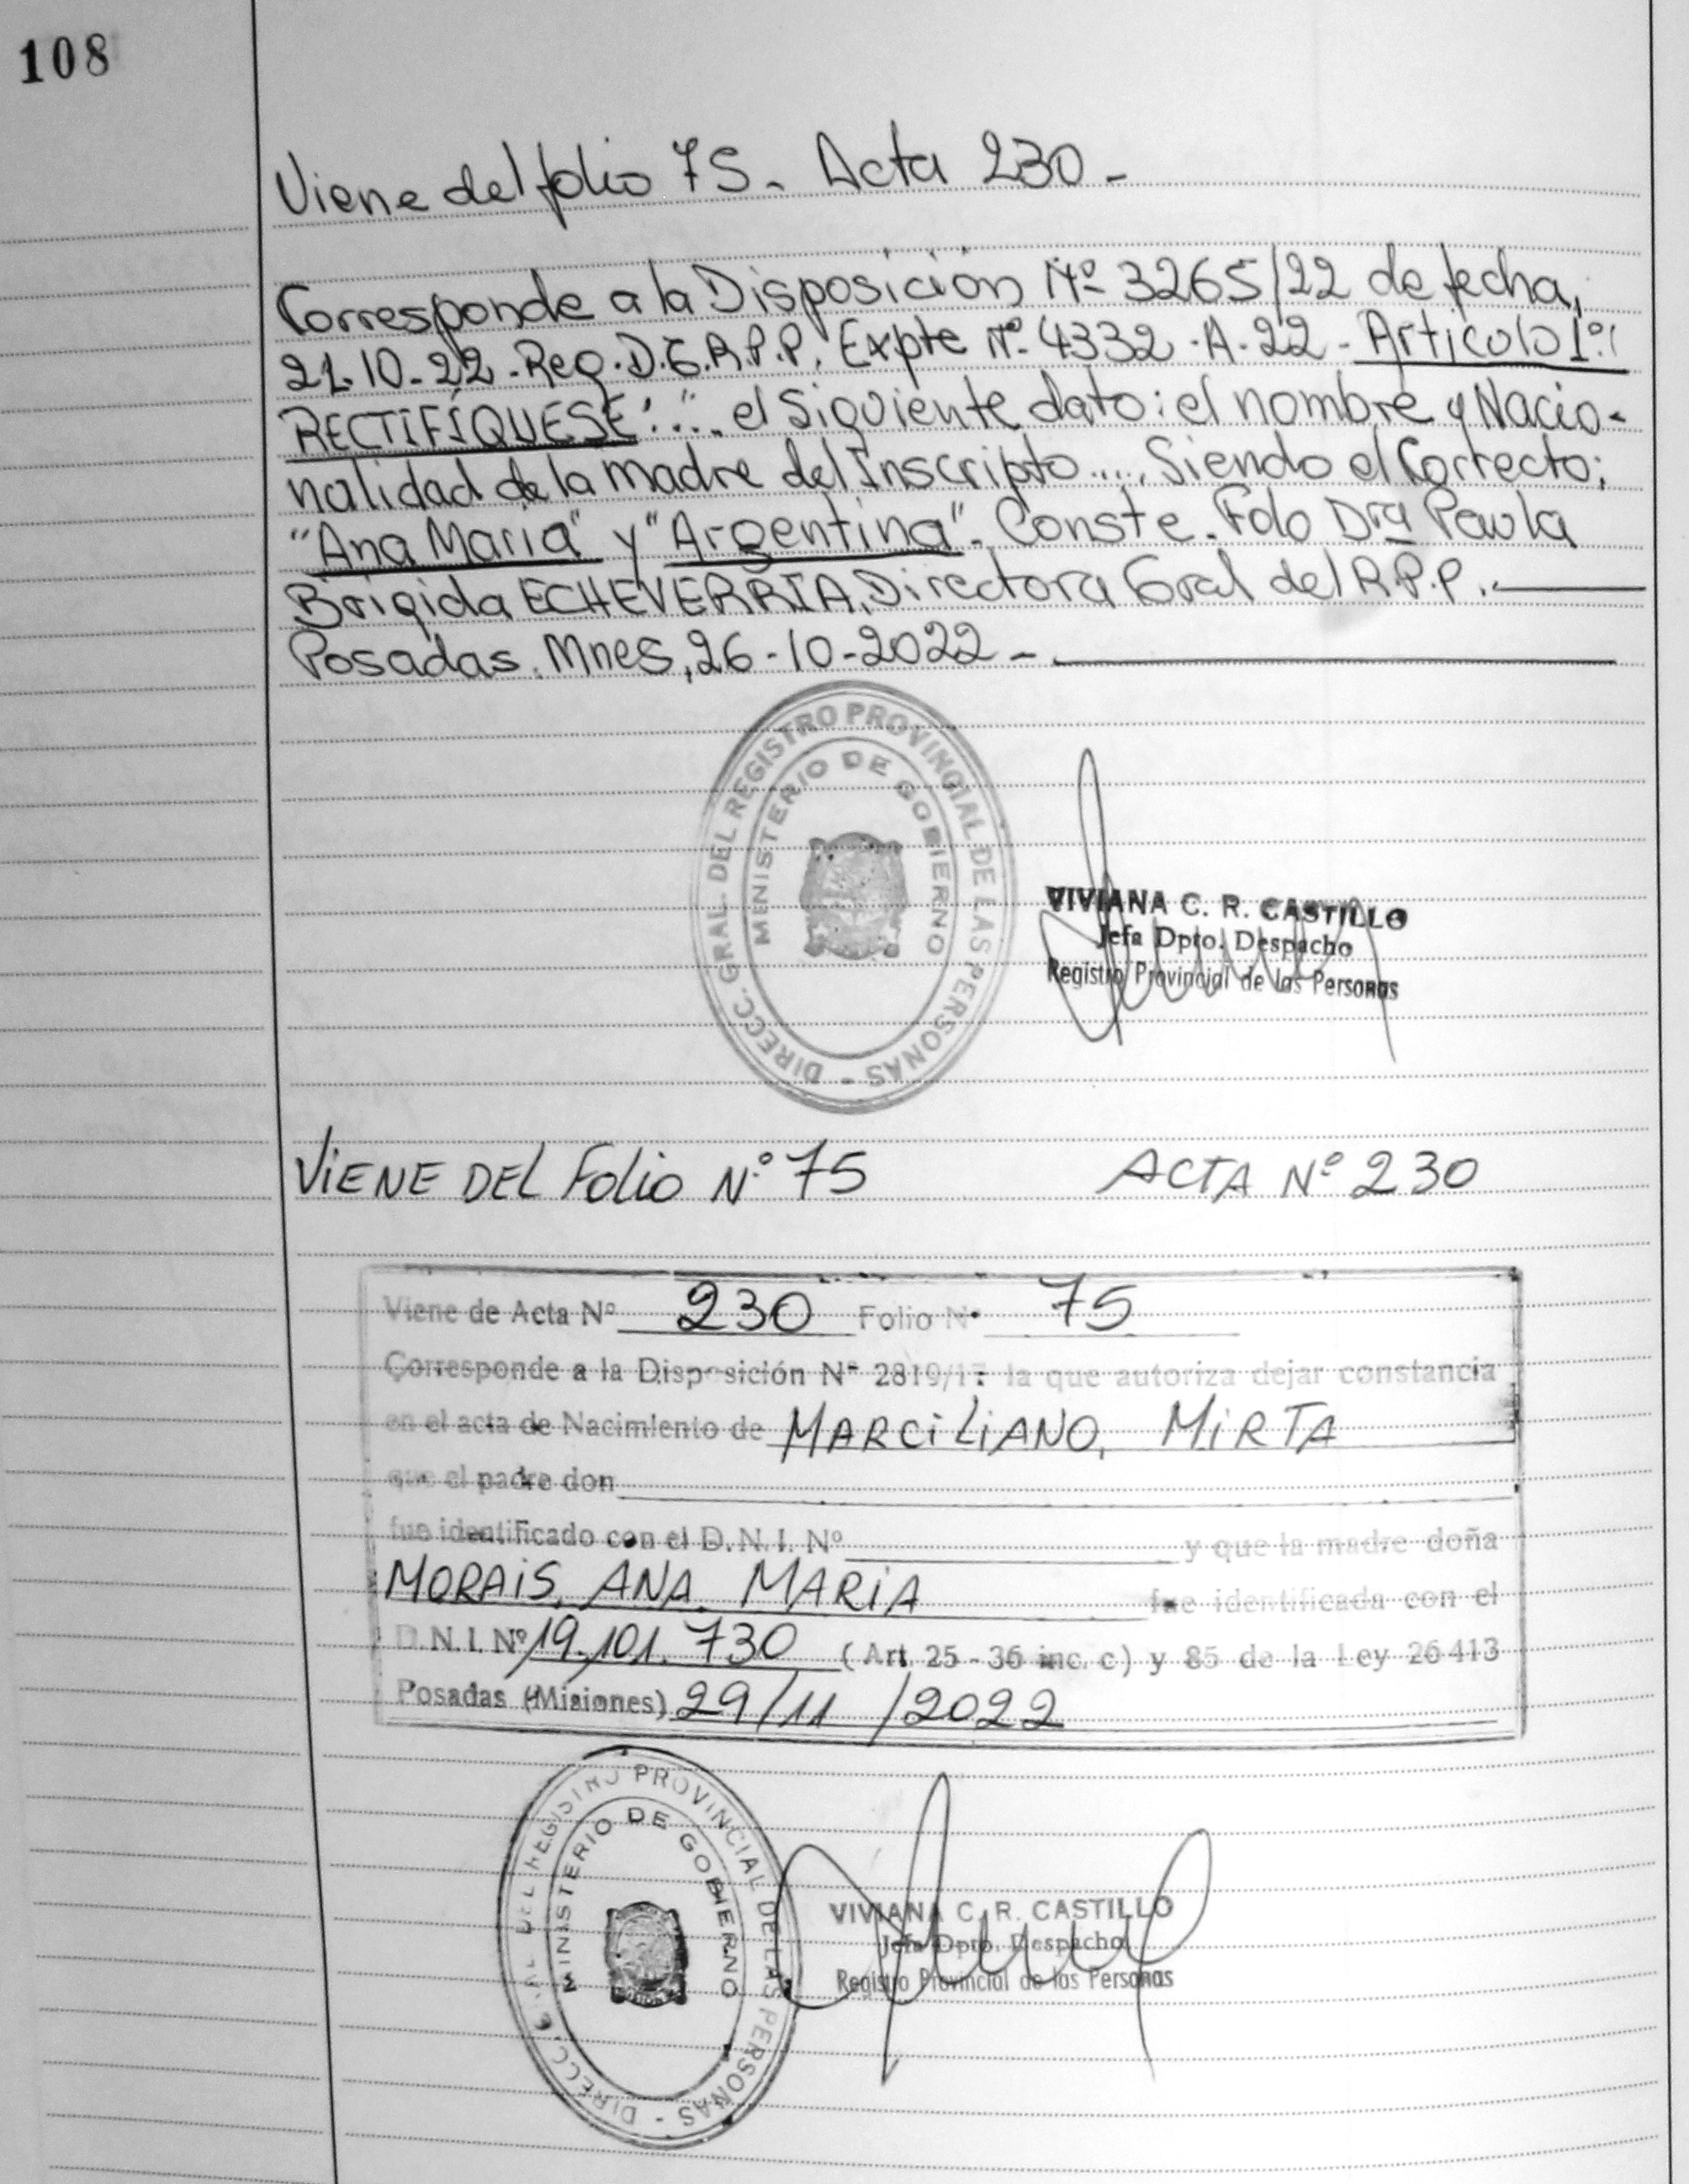 108
Viene del folio 75. Acta 230 -
Corresponde a la Disposición Nº 3265/22 de fecha,
21.10.22. Reg. D.G.R.P.P. Expte Nº 4332-A-22- Articulo 1º:
RECTIFÍQUESE: "... el Siguiente dato: el nombre y Nacio-
nalidad de la madre del Inscripto.... Siendo el Correcto:
"Ana Maria" y "Argentina". Conste. Fdo Dra Paula
Brigida ECHEVERRIA, Directora Gral del R.P.P.
Posadas. Mnes, 26-10-2022 -
DIRECC. GRAL. DEL REGISTRO PROVINCIAL DE LAS PERSONAS -
MINISTERIO DE GOBIERNO
VIVIANA C. R. CASTILLO
Jefa Dpto. Despacho
Registro Provincial de las Personas
VIENE DEL Folio Nº 75 ACTA Nº 230
Viene de Acta Nº 230 Folio Nº 75
Corresponde a la Disposición Nº 2819/17 la que autoriza dejar constancia
en el acta de Nacimiento de MARCILIANO, MIRTA
que el padre don
fue identificado con el D.N.I. Nº y que la madre doña
MORAIS, ANA MARIA fue identificada con el
D.N.I. Nº 19.101.730 (Art. 25 - 36 inc. c) y 85 de la Ley 26413
Posadas (Misiones) 29/11/2022
DIRECC. GRAL. DEL REGISTRO PROVINCIAL DE LAS PERSONAS -
MINISTERIO DE GOBIERNO
VIVIANA C. R. CASTILLO
Jefa Dpto. Despacho
Registro Provincial de las Personas